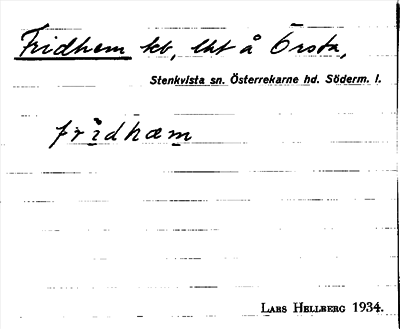 Fridhem tb, lht å Örsta,
Stenkvista sn. Österrekarne hd. Söderm. l.
fridhæm
Lars Hellberg 1934.